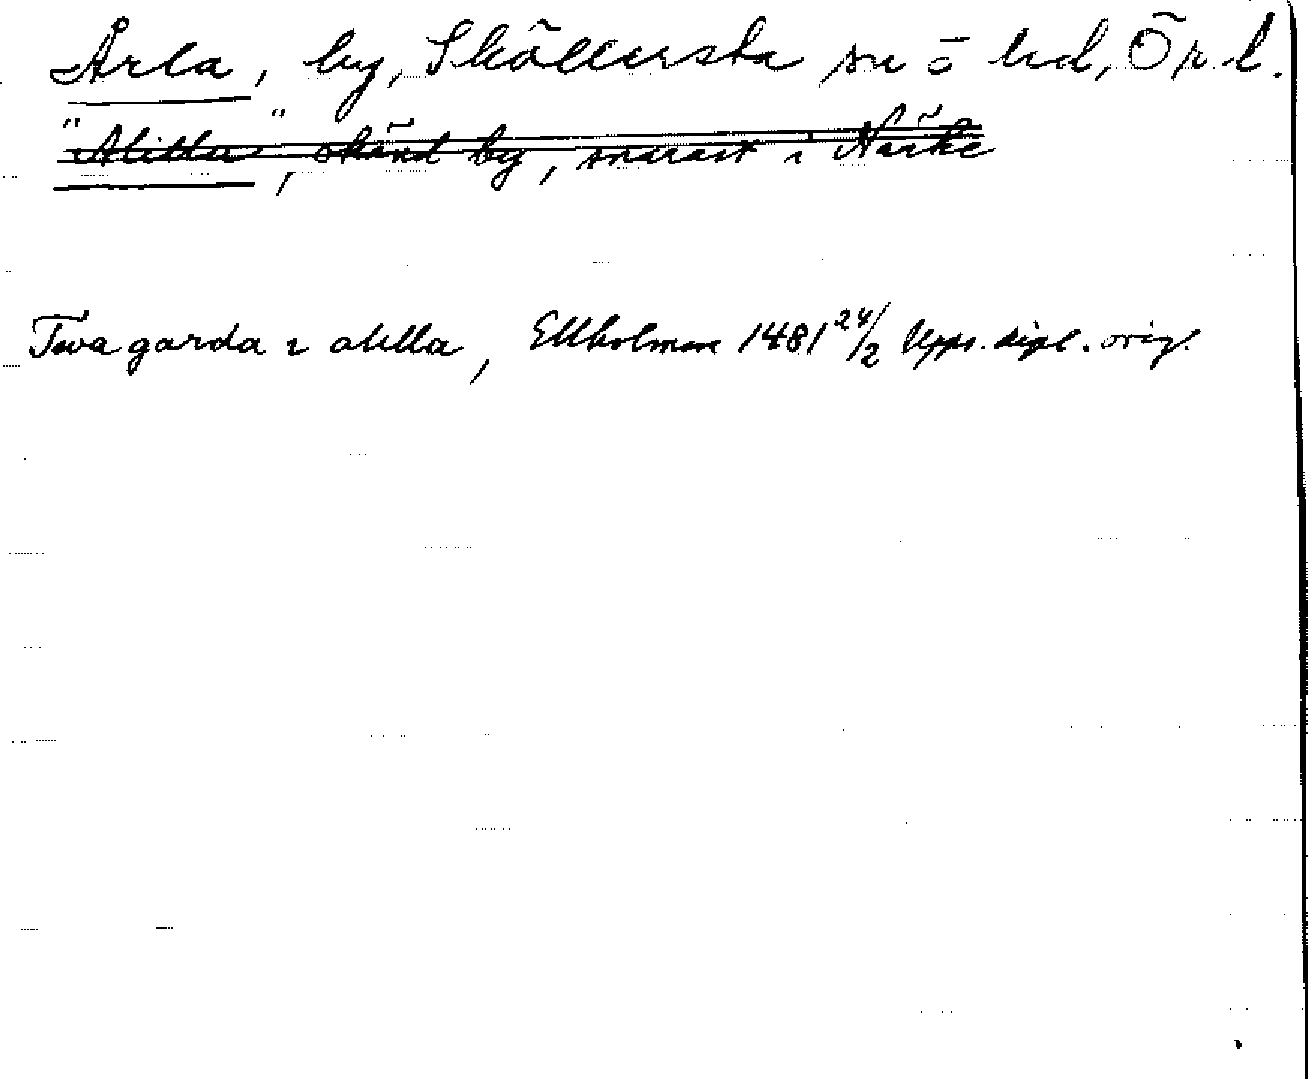 Årla, by, Sköllersta sn o hd, Ör. l.
"Alilla", okänd by, snarast i Närke
Twa garda i alilla, Ekholmen 1481 24/2 Upps. dipl. orig.